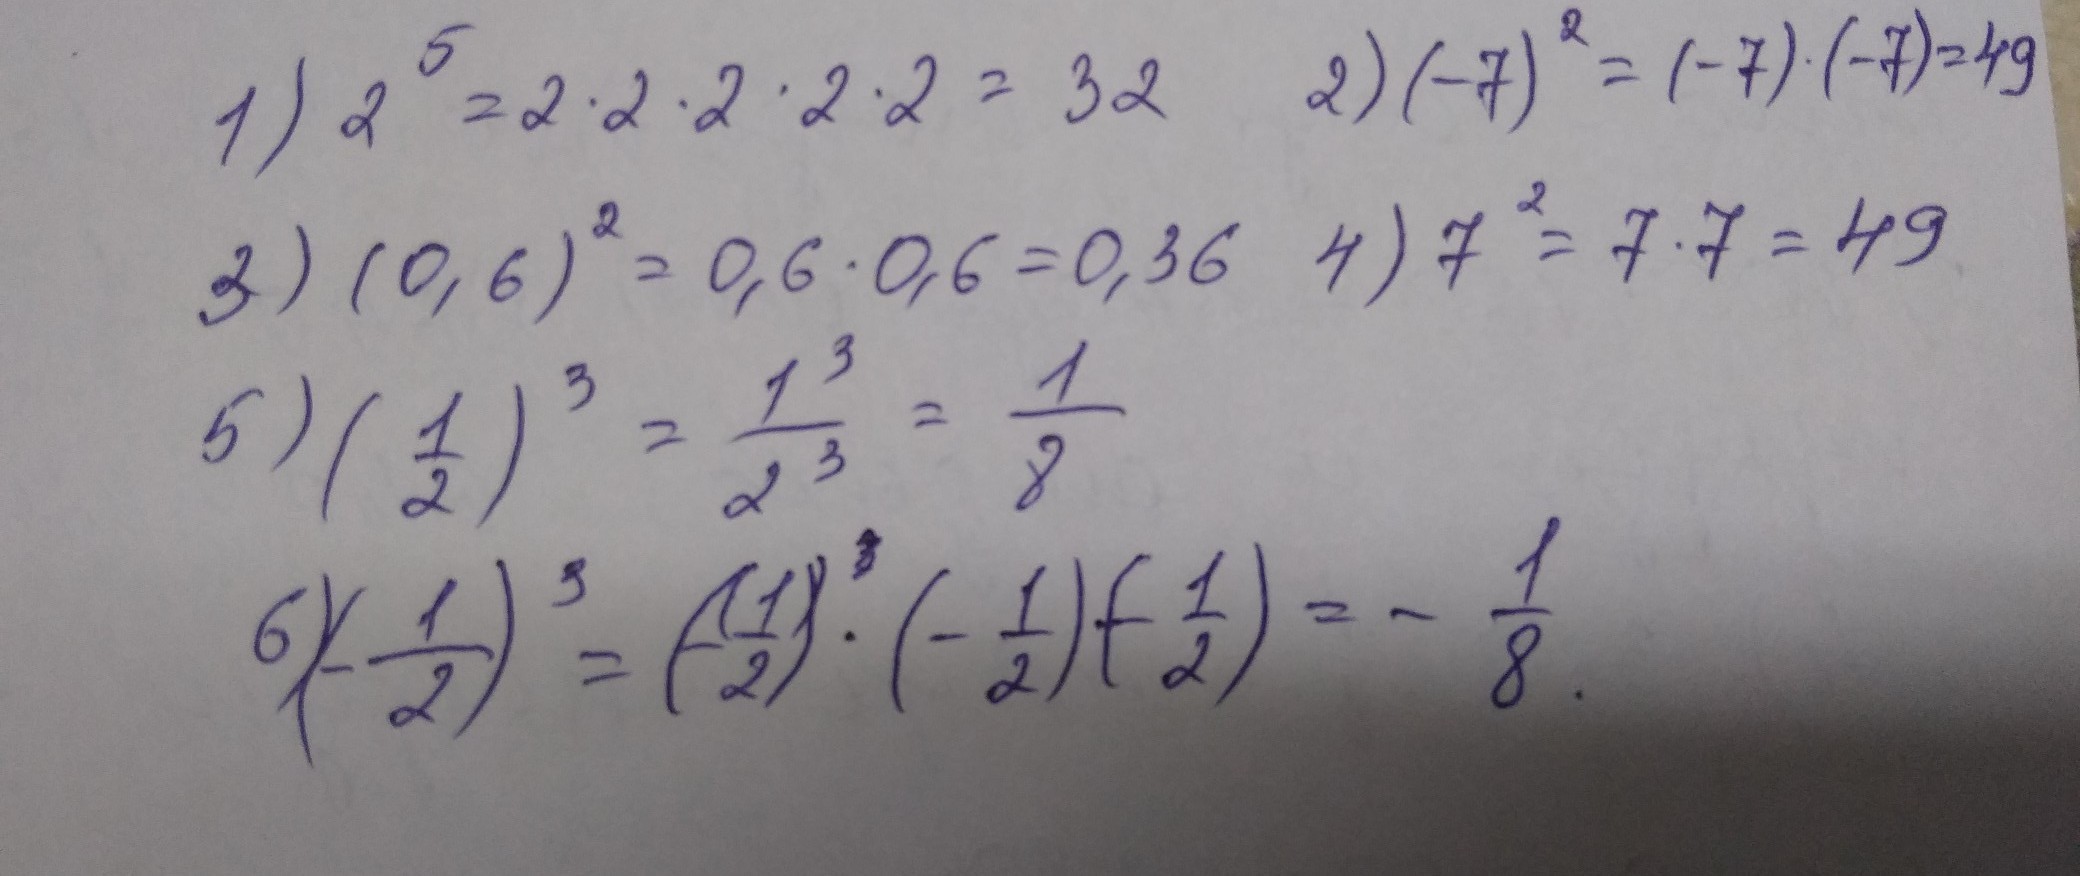 1) 2⁵ = 2 · 2 · 2 · 2 · 2 = 32 2) (-7)² = (-7) · (-7) = 49
3) (0,6)² = 0,6 · 0,6 = 0,36 4) 7² = 7 · 7 = 49
5) (1/2)³ = 1³/2³ = 1/8
6) (-1/2)³ = (-1/2) · (-1/2)(-1/2) = - 1/8.